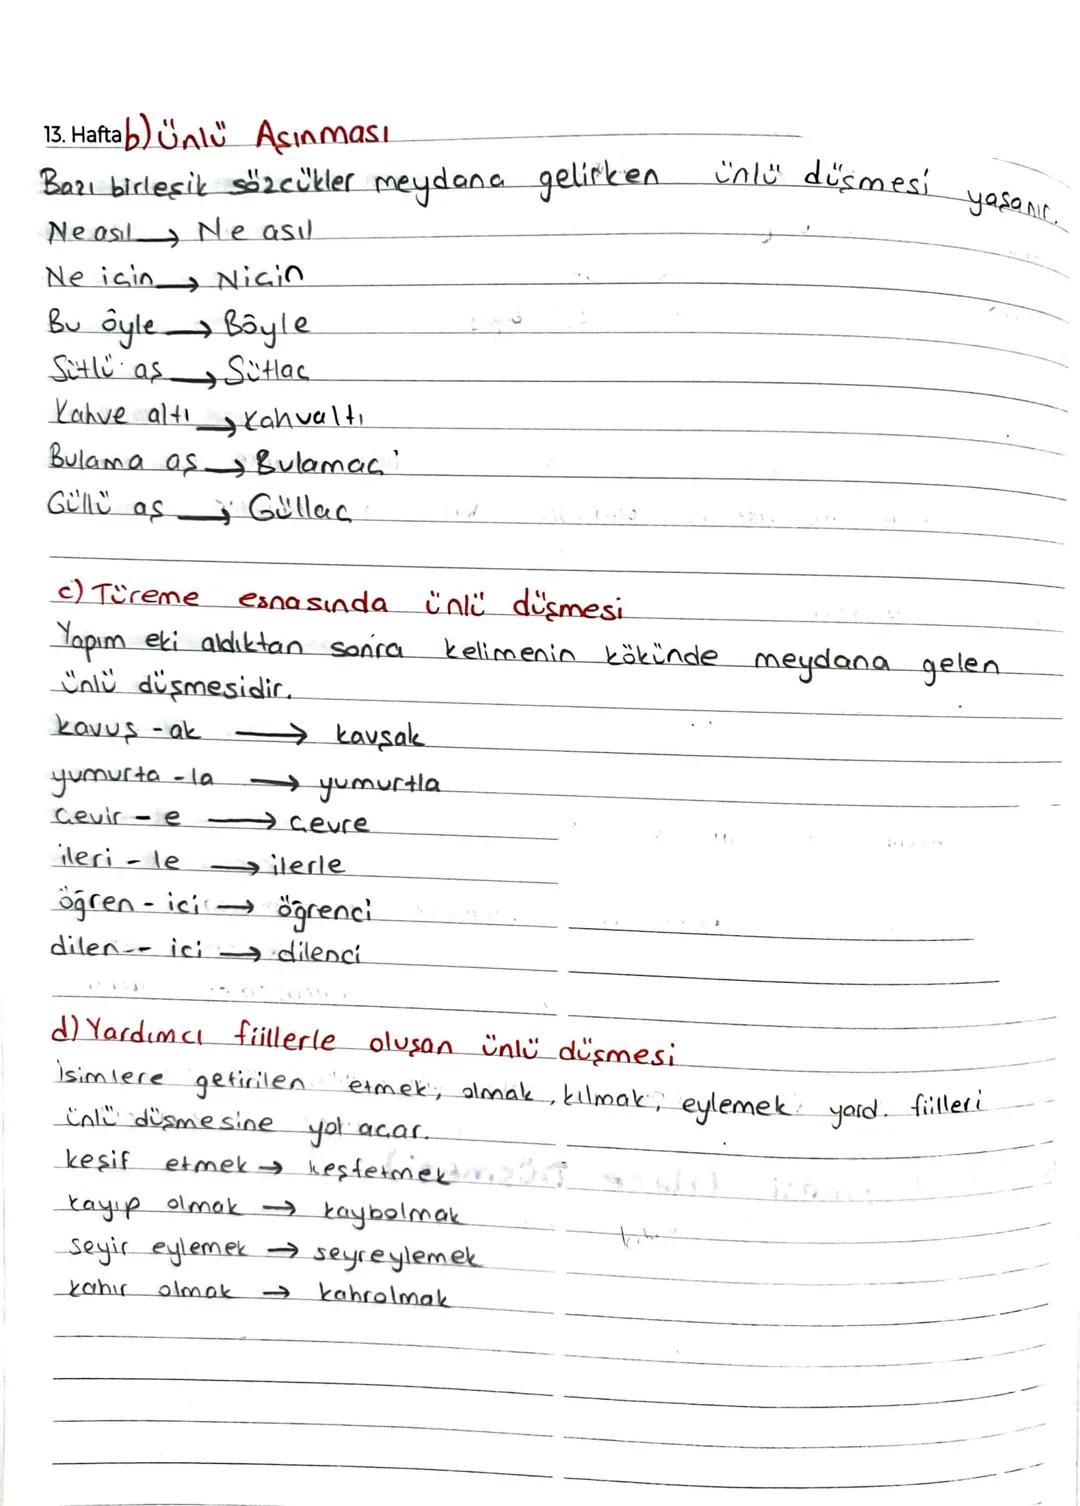 13. Hafta b) Ünlü Aşınması
Bazı birleşik sözcükler meydana gelirken ünlü düşmesi yaşanır.
Ne asıl → Ne asıl
Ne için → Niçin
Bu öyle → Böyle
Sütlü aş → Sütlaç
Kahve altı → Kahvaltı
Bulama aş → Bulamaç
Güllü aş → Güllaç
c) Türeme esnasında ünlü düşmesi
Yapım eki aldıktan sonra kelimenin kökünde meydana gelen
ünlü düşmesidir.
kavuş - ak → kavşak
yumurta - la → yumurtla
çevir - e → çevre
ileri - le → ilerle
öğren - ici → öğrenci
dilen - ici → dilenci
d) Yardımcı fiillerle oluşan ünlü düşmesi
İsimlere getirilen etmek, olmak, kılmak, eylemek yard. fiilleri
ünlü düşmesine yol açar.
keşif etmek → keşfetmek
kayıp olmak → kaybolmak
seyir eylemek → seyreylemek
kahır olmak → kahrolmak